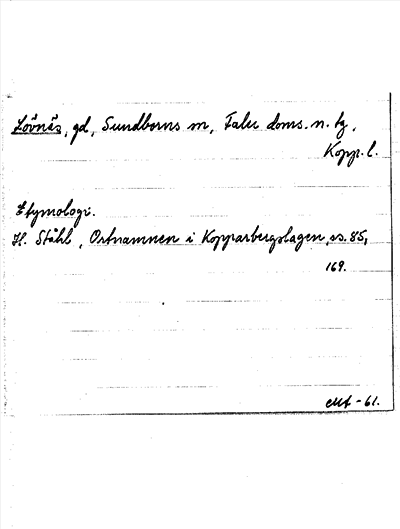 Lövnäs, gd, Sundborns sn, Falu doms. n. tg,
Kopp. l.
Etymologi.
H. Ståhl, Ortnamnen i Kopparbergslagen, ss. 85,
169.
-61.